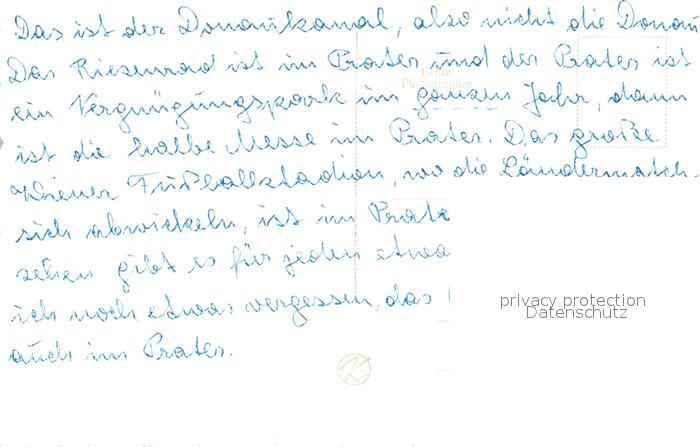 Das ist der Donaukanal, also nicht die Donau
Das Riesenrad ist im Prater und der Prater ist
ein Vergnügungspark im ganzen Jahr, dann
ist die halbe Messe im Prater. Das große
Wiener Fußballstadion, wo die Ländermatch-
sich abwickeln, ist im Prate
sehen gibt es für jeden etwa
ich noch etwas vergessen, das
auch im Prater.
Echte
Photographie
privacy protection
Datenschutz